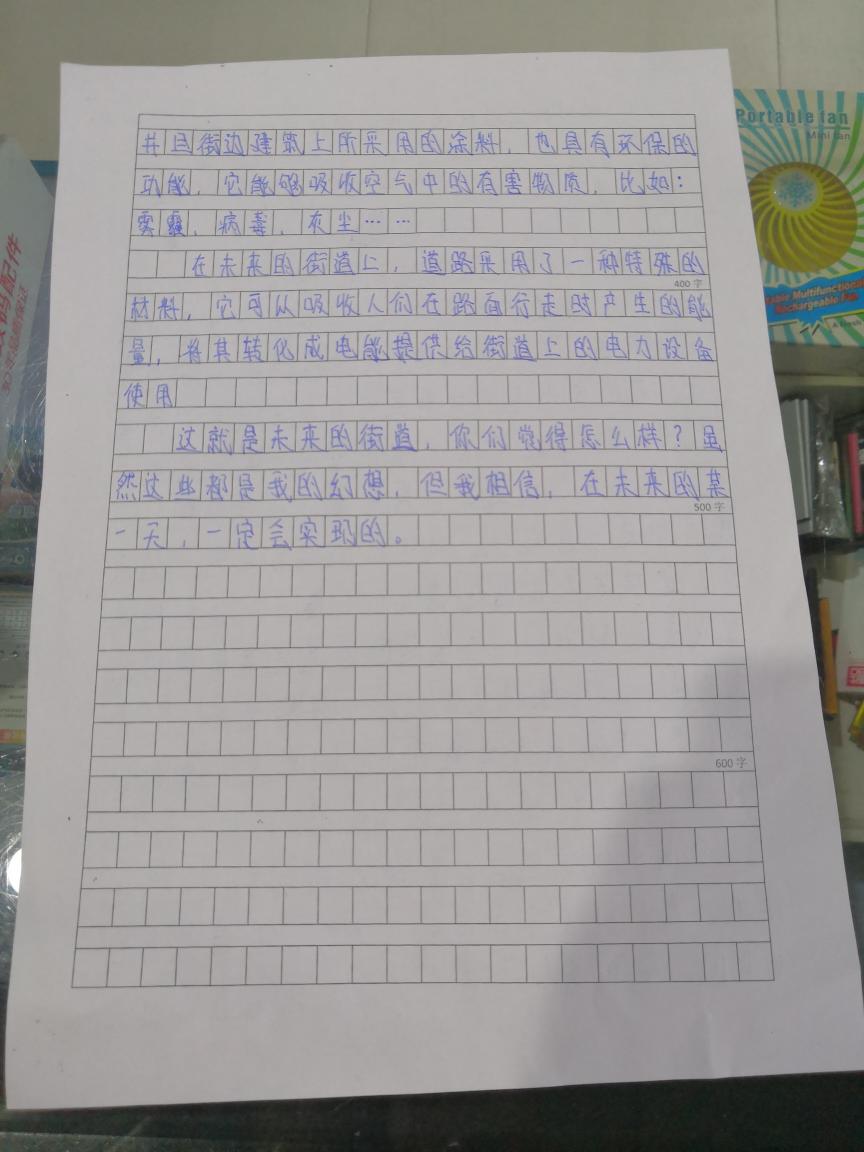 并且街边建筑上所采用的涂料，也具有环保的
功能，它能够吸收空气中的有害物质，比如：
雾霾，病毒，灰尘……
在未来的街道上，道路采用了一种特殊的
400字
材料，它可以吸收人们在路面行走时产生的能
量，将其转化成电能提供给街道上的电力设备
使用
这就是未来的街道，你们觉得怎么样？虽
然这些都是我的幻想，但我相信，在未来的某
500字
一天，一定会实现的。
600字
Portable fan
Mini fan
Table Multifunctional
Rechargeable Fan
码配件